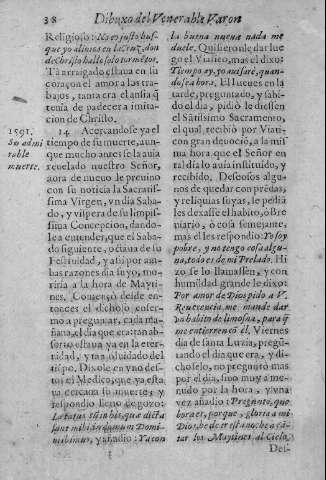 38 Dibuxo del Venerable Varon
Religioso: No es justo bus-
que yo alivios en la Cruz, don
de Christo hallo solo tormẽtos.
Tã arraigado estava en su
coraçon el amor a los tra-
bajos, tanta era el ansia q̃
tenia de padecer a imita-
cion de Christo.
1591. 14. Acercandose ya el
Su admi tiempo de su muerte, aun-
rable que mucho antes se la avia
muerte. revelado nuestro Señor,
aora de nuevo le previno
con su noticia la Sacratis-
sima Virgen, vn dia Saba-
do, y vispera de su limpiss-
sima Concepcion, dando-
le a entender, que el Saba-
do siguiente, octava de su
Festividad, y assi por am-
bas razones dia suyo, mo-
riria a la hora de Mayti-
nes. Començò desde en-
tonces el dichoso enfer-
mo a preguntar, cada ma-
ñana, el dia que era: tan ab-
sorto estava ya en la eter-
nidad, y tan olvidado del
tiẽpo. Dixole en vno des-
tos el Medico, que ya esta-
va cercana su muerte; y
respondio lleno de gozo:
Lætatus sũ in his, quæ dicta
sunt mihi: in domum Domi-
ni ibimus, y añadio: Ya con
la buena nueva nada me
duele. Quisieronle dar lue
go el Viatico, mas el dixo:
Tiempo ay, yo avisarè, quan-
do sea hora. El Iueves en la
tarde, preguntado, y sabi-
do el dia, pidiò le diessen
el Sãtissimo Sacramento,
el qual recibiò por Viati-
co con gran devociõ, a la mis
ma hora que el Señor en
tal dia lo avia instituido, y
recibido. Deseosos algu-
nos de quedar con prẽdas,
y reliquias suyas, le pediã
les dexasse el habito, ò Bre
viario, ò cosa semejante,
mas el les respondiò: Yo soy
pobre, y no tengo cosa algu-
na, todo es de mi Prelado. Hi
zo se lo llamassen, y con
humildad grande le dixo:
Por amor de Dios pido a V.
Reverencia, me mande dar
vn habito de limosna, para q̃
me entierren cõ el. Viernes
dia de santa Luzia, pregũ-
tando el dia que era, y di-
choselo, no preguntò mas
por el dia, sino muy a me-
nudo por la hora, y vna
vez añadio: Pregunto, que
hora es, porque, gloria a mi
Dios, he de ir esta noche a cã-
tar los Maytines al Cielo.
Des-